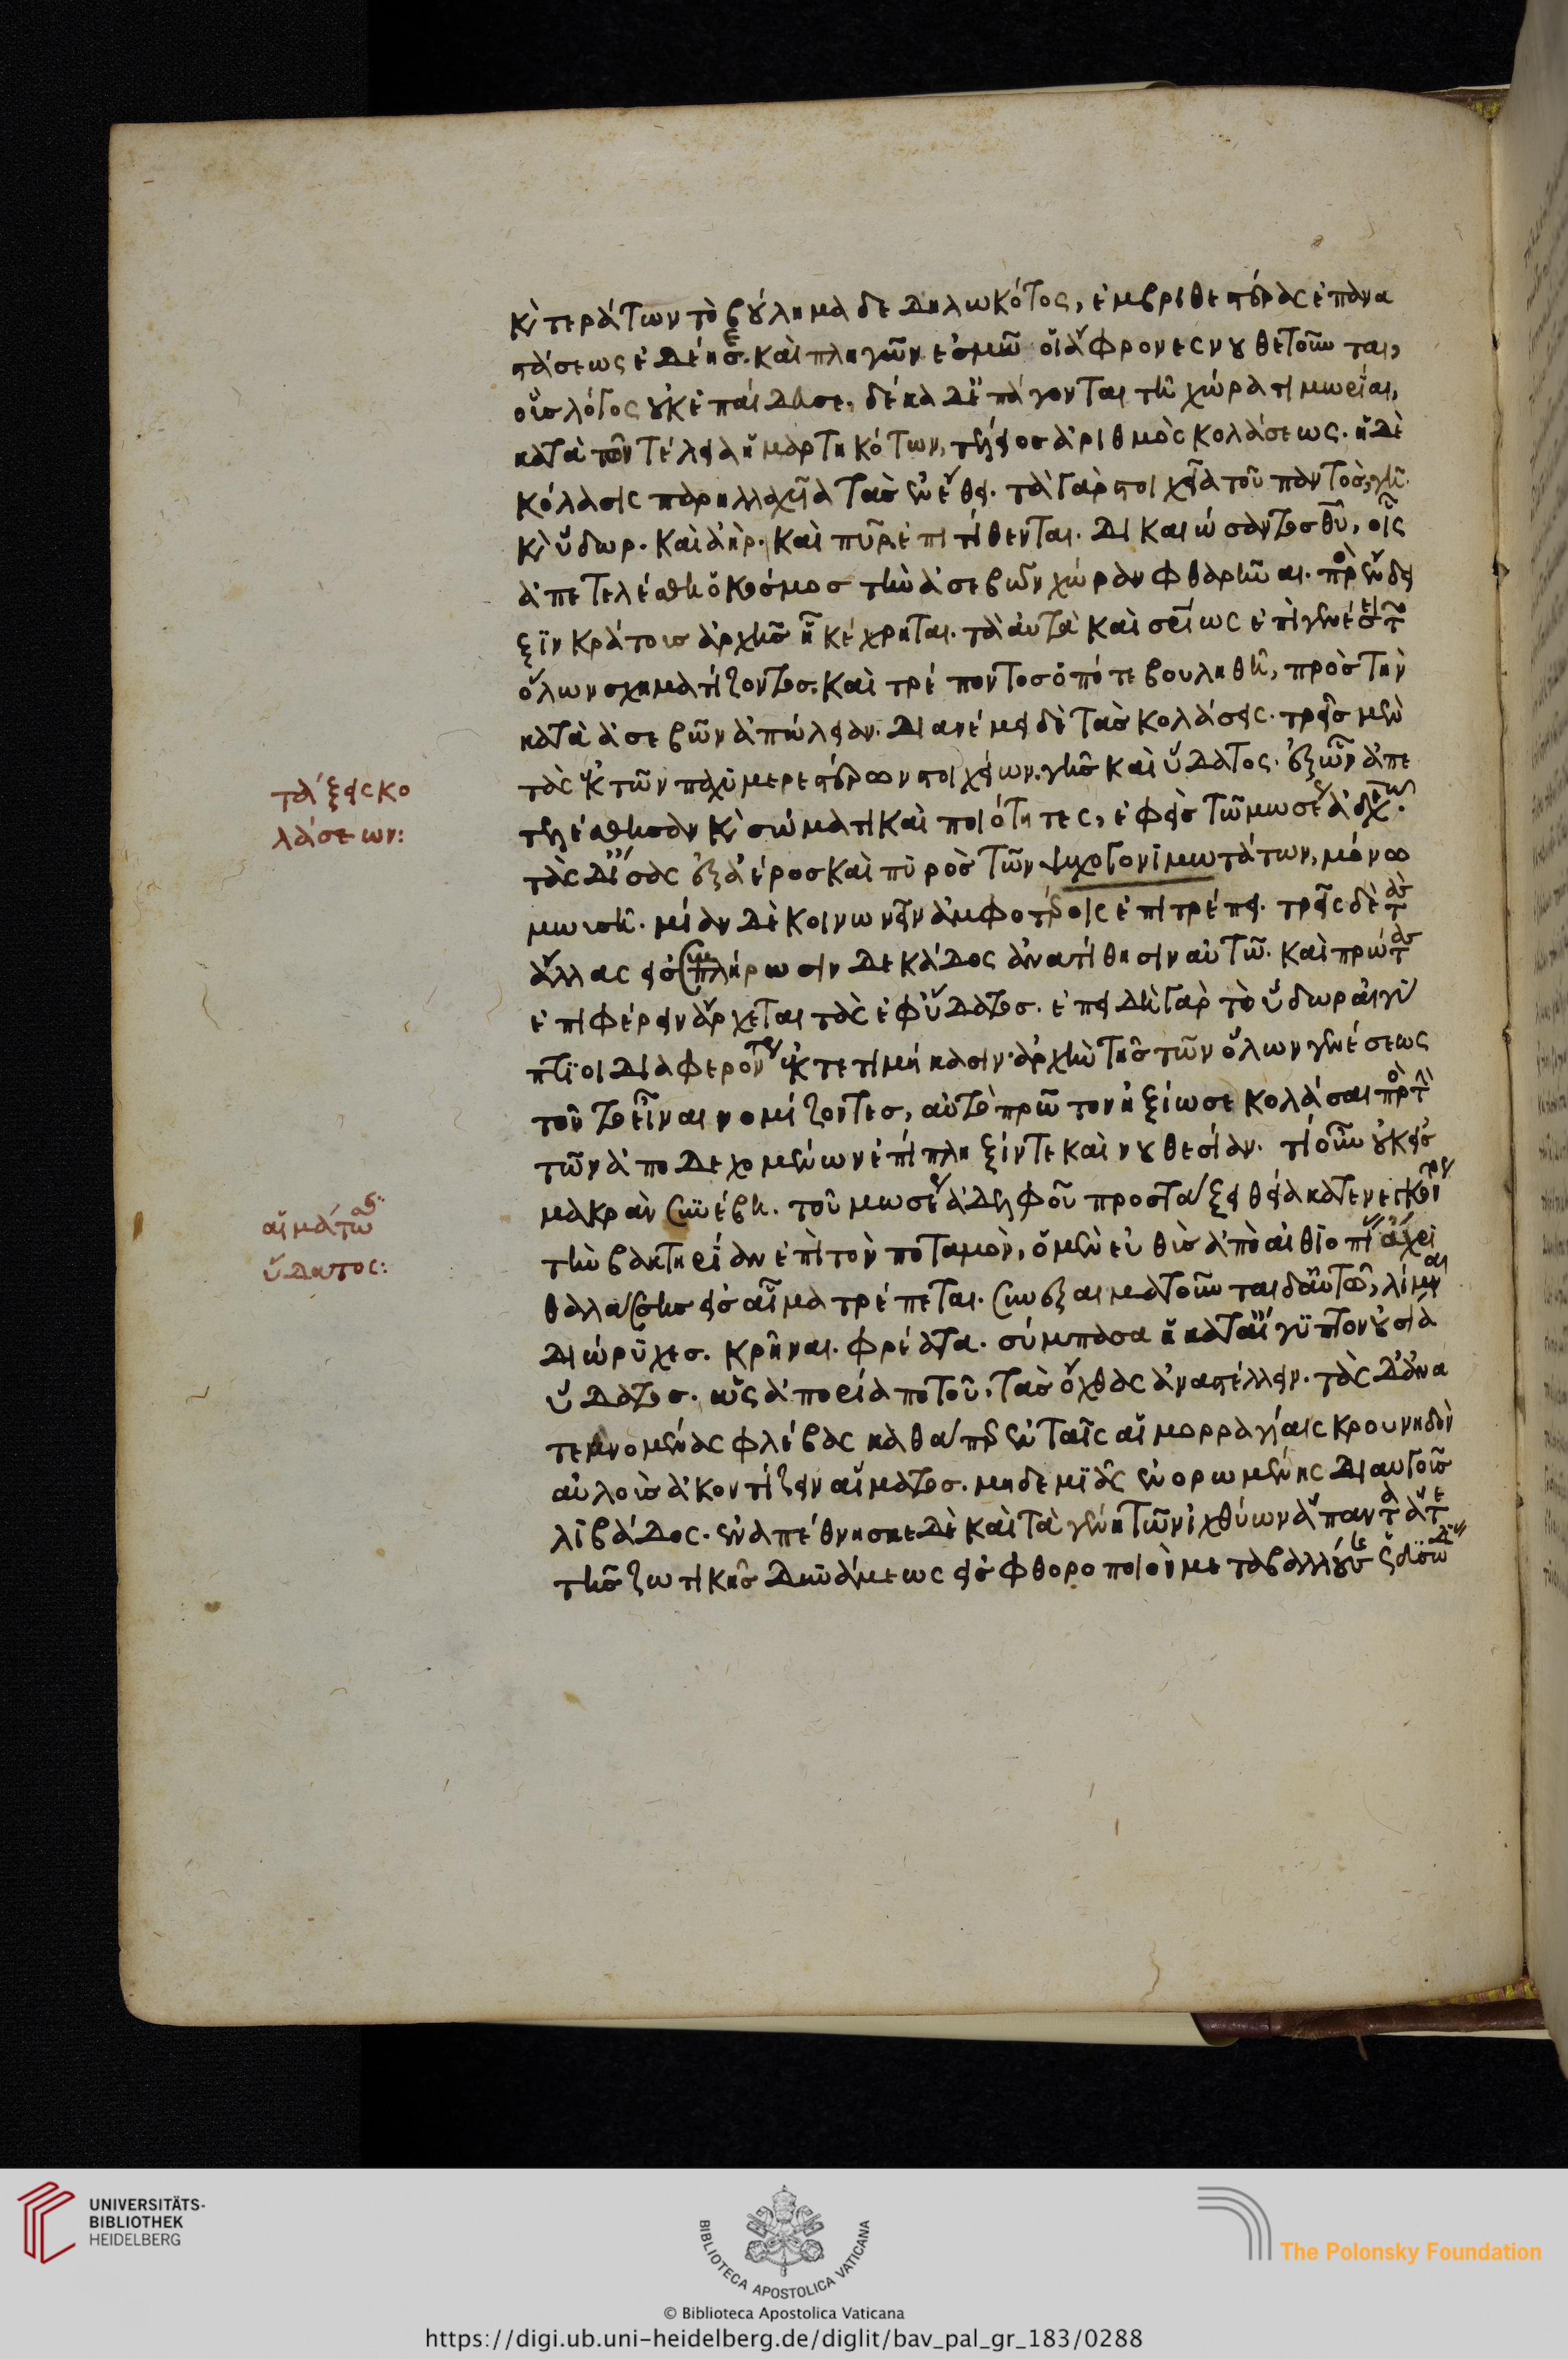 κ τεράτων τὸ βούλημα δεδηλωκότος, ἐμβριθεστέρας ἐπανα
στάσεως ἐδέησε. καὶ πληγῶν ἐσμοῦ οἷς ἄφρονες νουθετοῦνται,
οὓς λόγος οὐκ ἐπαίδευσε. δέκα δἐπάγονται τῆ χώρα τιμωρίαι,
κατὰ τῶν τέλεια ἡμαρτηκότων, τέλειος ἀριθμὸς κολάσεως. ἡ δὲ
κόλασις παρηλλαχυῖα τὰς ἐν ἔθει. τὰ γὰρ στοιχεῖα τοῦ παντὸς, γῆ.
κ ὕδωρ. καὶ ἀὴρ. καὶ πῦρ ἐπιτίθενται. δικαιώσαντος θῦ, οἷς
ἀπετελέσθη ὁ κόσμος τὴν ἀσεβῶν χώραν φθαρῆναι. πρὸς ἔνδει
ξιν κράτους ἀρχῆς ᾗ κέχρηται. τὰ αὐτὰ καὶ σρίως ἐπὶ γενέσει τῶν
ὅλων σχηματίζοντος. καὶ τρέποντος ὁπότε βουληθῆ, πρὸς τὴν
κατὰ ἀσεβῶν ἀπώλειαν. διανέμει δὲ τὰς κολάσεις. τρεῖς μὲν
τὰς ἐκ τῶν παχυμερεστέρων στοιχείων, γῆς καὶ ὕδατος. ἐξ ὧν ἀπε
τελέσθησαν κ σώματικαὶ ποιότητες, ἐφεὶς τῶ μωσέως ἀδελφῶ.
τὰς δἴσας ἐξ ἀέρος καὶ πυρὸς τῶν ψυχογονιμωτάτων, μόνω
μωυσῆ. μίαν δὲ κοινωνεῖν ἀμφοτέροις ἐπιτρέπει. τρεῖς δὲ τὰς
ἄλλας εἰς συμπλήρωσιν δεκάδος ἀνατίθησιν αὑτῶ. καὶ πρώτας
ἐπιφέρειν ἄρχεται τὰς ἐφ ὕδατος. ἐπειδὴ γὰρ τὸ ὕδωρ αἰγύ
πτιοι διαφερόντως ἐκτετιμήκασιν ἀρχὴν τῆς τῶν ὅλων γενέσεως
τοῦτο εἶναι νομίζοντες, αὐτὸ πρῶτον ἠξίωσε κολάσαι πρὸς τὴν
τῶν ἀποδεχομένων ἐπίπληξίν τε καὶ νουθεσίαν. τί οὖν οὐκ εἰς
μακρὰν συνέβη. τοῦ μωσέως ἀδελφοῦ προστάξει θεία κατενεγκόντος
τὴν βακτηρίαν ἐπὶ τὸν ποταμὸν, ὁ μὲν εὐθὺς ἀπὸ αἰθιοπίας ἄχρι
θαλάσσης εἰς αἷμα τρέπεται. συνεξαιματοῦνται δαὐτῶ, λίμναι
διώρυχες. κρῆναι. φρέατα. σύμπασα ἡ κατ αἴγυπτον οὐσία
ὕδατος. ὡς ἀπορία ποτοῦ, τὰς ὄχθας ἀναστέλλειν. τὰς δἀνα
τεμνομένας φλέβας καθάπερ ἐν ταῖς αἱμορραγίαις κρουνηδὸν
αὐλοὺς ἀκοντίζειν αἵματος. μηδεμιᾶς ἐνορωμένης διαυγοῦς
λιβάδος. ἐναπέθνησκε δὲ καὶ τὰ γένη τῶν ἰχθύων ἅπαντα ἅτε
τῆς ζωτικῆς δυνάμεως εἰς φθοροποιὸν μεταβαλλούσης
τάξεις κο
λάσεων:
αἱμάτω
ὕδατος:
UNIVERSITÄTS-
BIBLIOTHEK
HEIDELBERG
BIBLIOTECA APOSTOLICA VATICANA
The Polonsky Foundation
© Biblioteca Apostolica Vaticana
https://digi.ub.uni-heidelberg.de/diglit/bav_pal_gr_183/0288